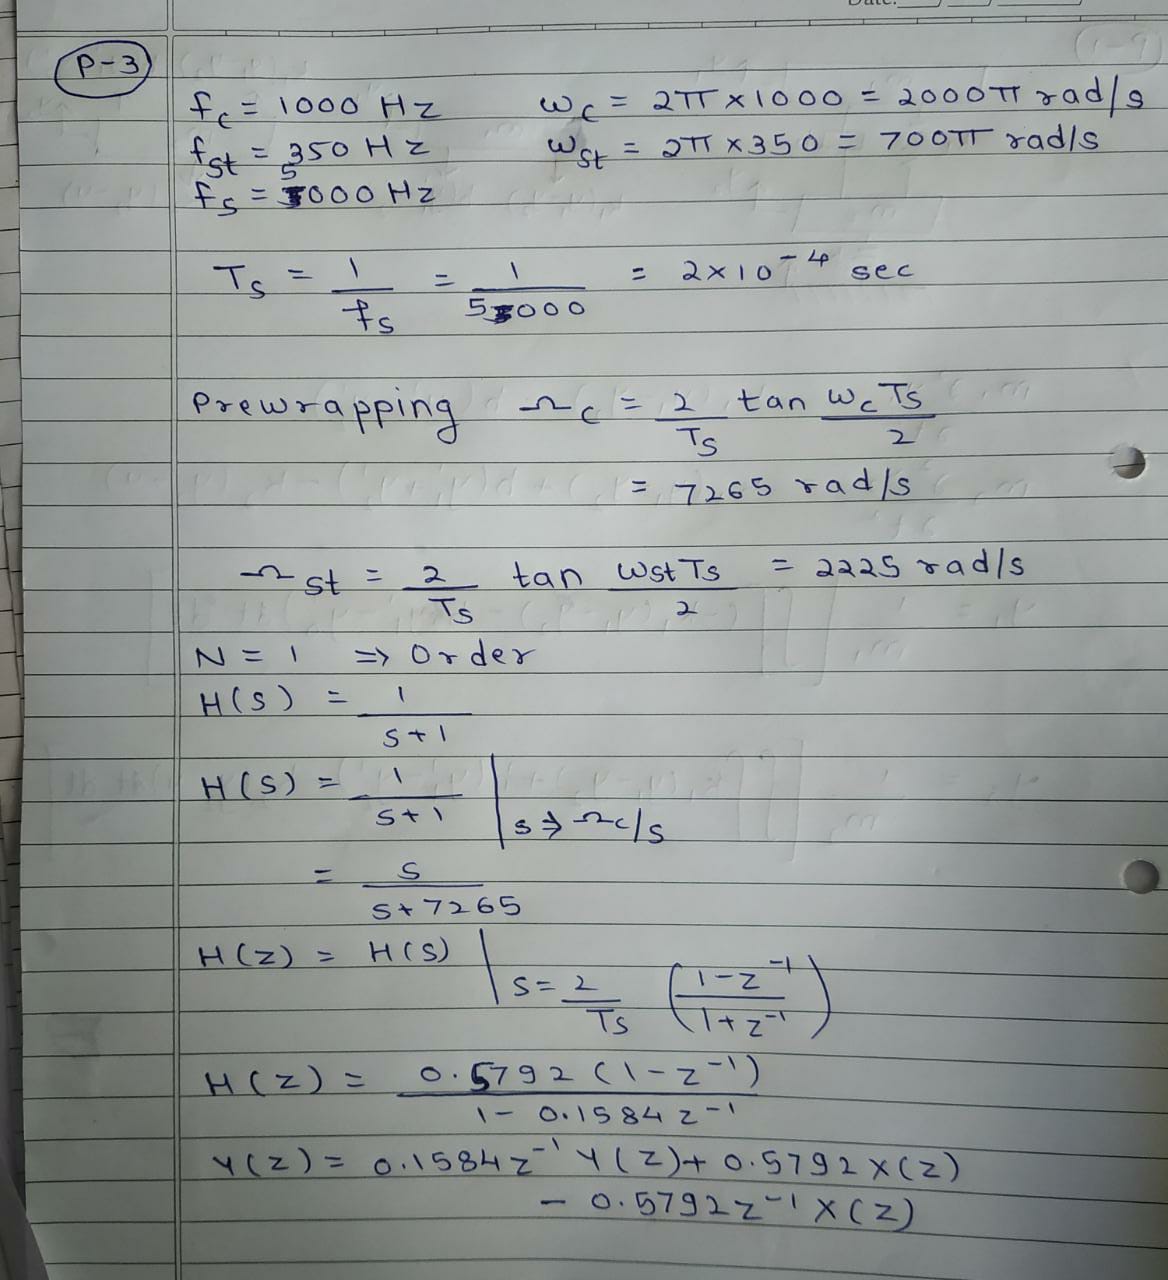 Date:
P-3
f_c = 1000 Hz    ω_c = 2π × 1000 = 2000π rad/s
f_st = 350 Hz    ω_st = 2π × 350 = 700π rad/s
f_s = 5000 Hz
T_s = 1/f_s = 1/5000 = 2×10^-4 sec
Prewrapping Ω_c = 2/T_s tan ω_c T_s/2
= 7265 rad/s
Ω_st = 2/T_s tan ω_st T_s/2 = 2225 rad/s
N = 1 ⇒ Order
H(s) = 1/(s+1)
H(s) = 1/(s+1) | s⇒Ω_c/s
= s/(s+7265)
H(z) = H(s) | s = 2/T_s ((1-z^-1)/(1+z^-1))
H(z) = 0.5792 (1-z^-1)/(1 - 0.1584 z^-1)
Y(z) = 0.1584 z^-1 Y(z) + 0.5792 X(z)
- 0.5792 z^-1 X(z)